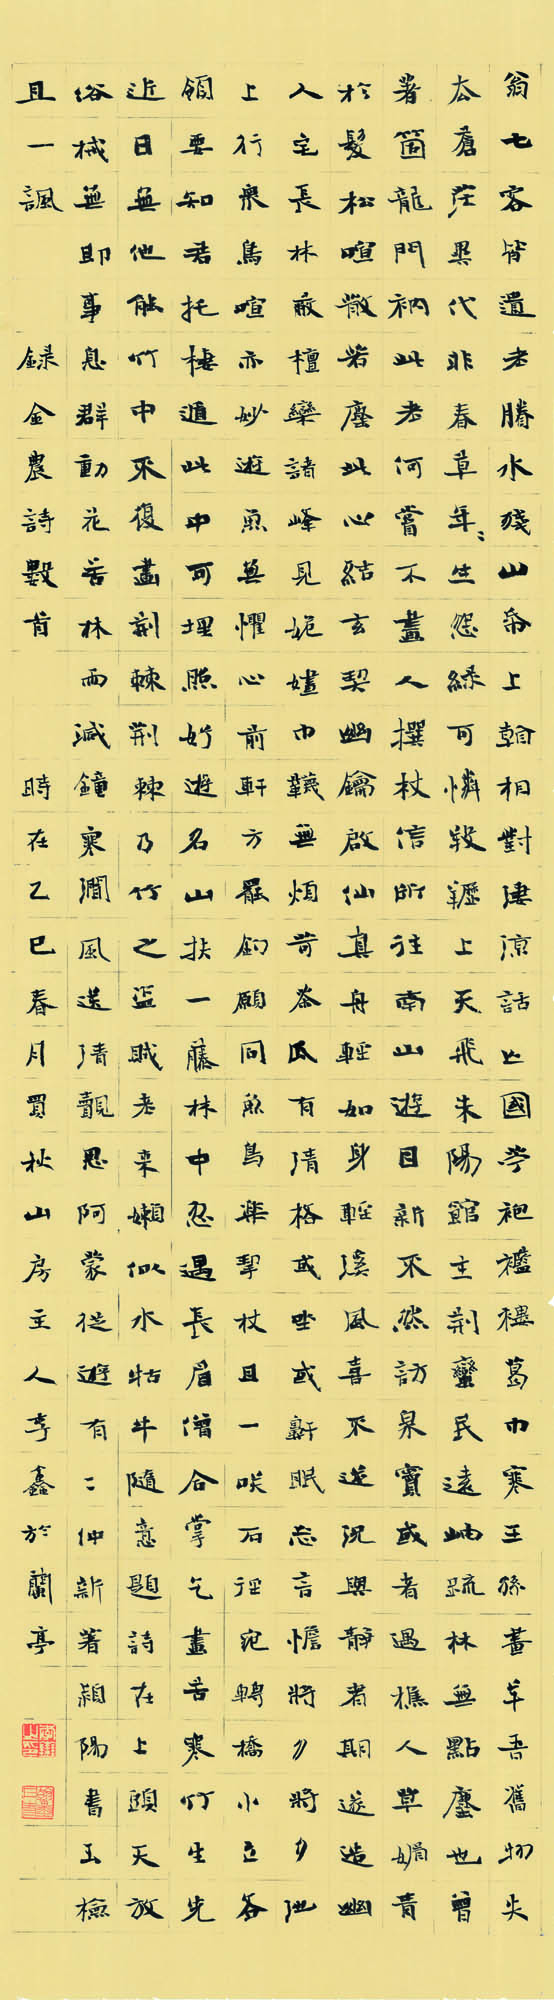 翁七客皆遺老賸水殘山帋上翰相對凄涼話亡國苧袍襤褸葛巾寒王孫畫羊吾舊物失
太蒼茫異代非春草年〻生怨綠可憐毀轢上天飛朱陽館主荊蠻民遠岫疏林無點塵也曾
著箇龍門衲此老何嘗不畫人撰杖信所往南山遊目新不然訪泉竇或者過樵人草媚青
於髮松喧散若塵此心結玄契幽鑰啟仙真舟輕如身輕溪風喜不送況與靜者期遂造幽
人宅長林蔽檀欒諸峰見姽嫿巾韈無煩苛茶瓜有清格或坐或鼾眠忘言憺將夕將夕池
上行衆鳥喧亦妙遊魚無懼心前軒方罷釣願同魚鳥樂挈杖且一咲石徑宛轉橋小立答
領要知君托棲遁此中可埋照好遊名山扶一藤林中忽遇長眉僧合掌乞畫苦寒竹生先
近日無他能竹中不復畫荊棘荊棘乃竹之盜賊老來嬾似水牯牛隨意題詩在上頭天放
俗械無即事息群動花苦林雨減鐘寒澗風送清覯思阿蒙從遊有二仲新著潁陽書玉檢
且一諷 録金農詩數首 時在乙巳春月買秋山房主人李鑫於蘭亭